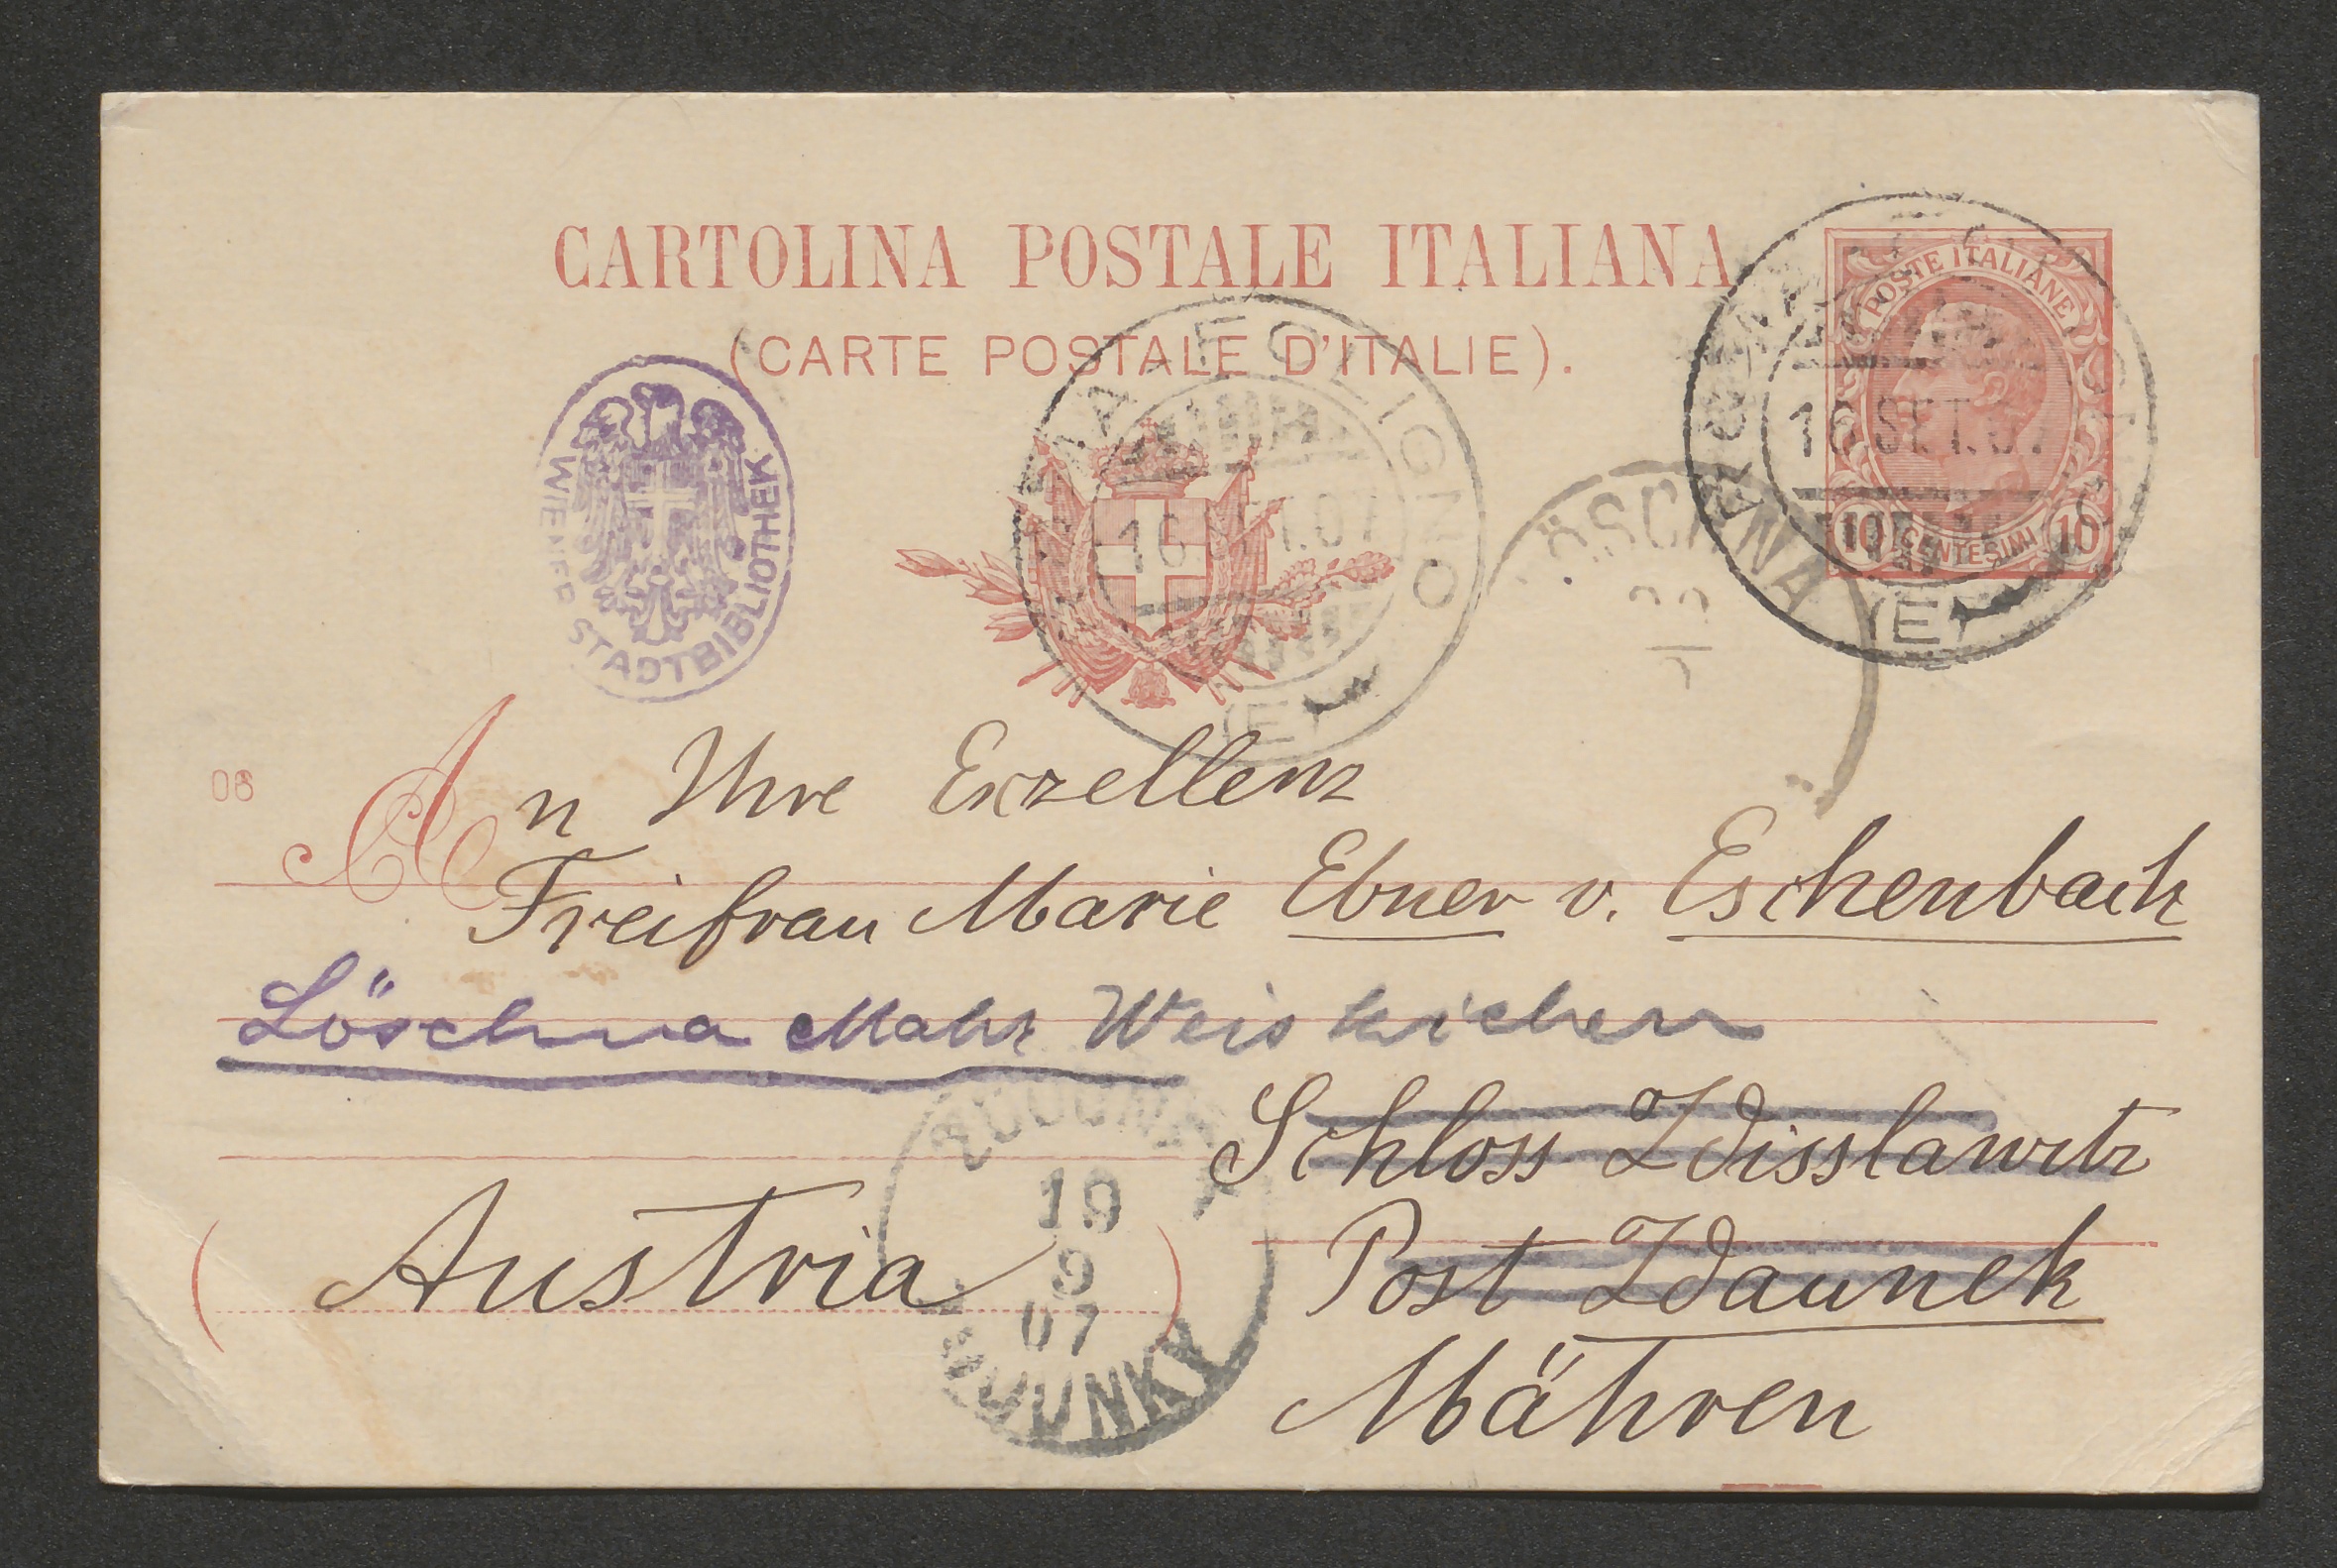 CARTOLINA POSTALE ITALIANA
(CARTE POSTALE D'ITALIE).
POSTE ITALIANE
16 SET. 07
10 CENTESIMI 10
(E)
FOLIGNO
16 SET. 07
(E)
WIENER STADTBIBLIOTHEK
LÖSCHNA
06
An Ihre Exzellenz
Freifrau Marie Ebner v. Eschenbach
Löschna Mähr Weiskichen
Schloss Zdisslawitz
Post Zdaunek
Mähren
(Austria)
19
9
07
ZDOUNKY